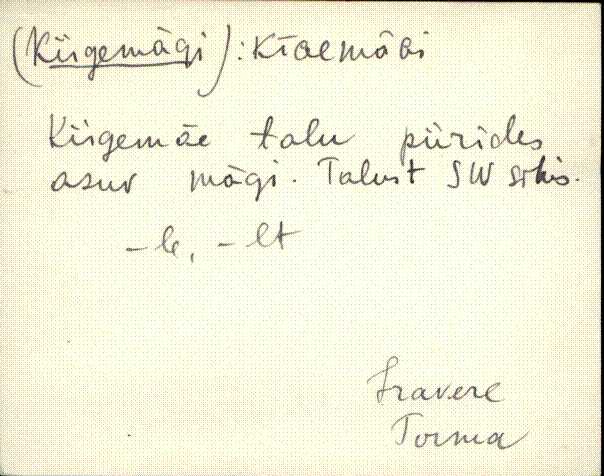 (Kiigemägi): Kīɢemäɢi
Kiigemäe talu piirides
asuv mägi. Talust SW sihis.
-le, -lt
Iravere
Torma